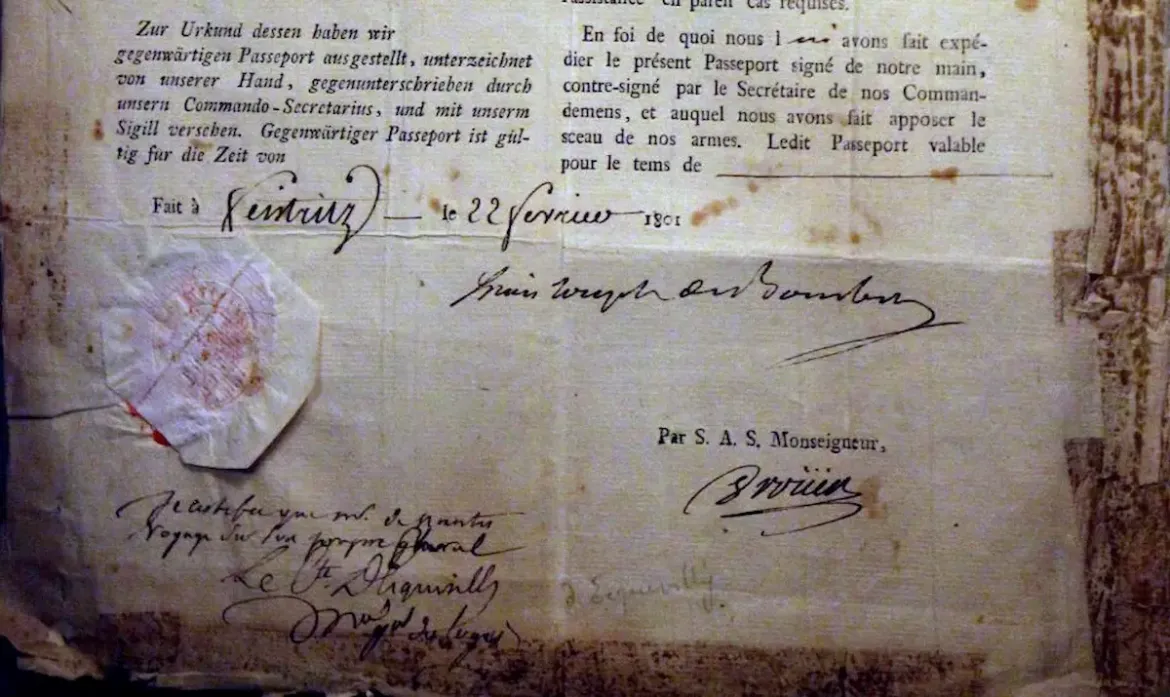 l'assistance en pareil cas requises.
Zur Urkund dessen haben wir
gegenwärtigen Passeport ausgestellt, unterzeichnet
von unserer Hand, gegenunterschrieben durch
unsern Commando-Secretarius, und mit unserm
Sigill versehen. Gegenwärtiger Passeport ist gül-
tig fur die Zeit von
En foi de quoi nous avons fait expé-
dier le présent Passeport signé de notre main,
contre-signé par le Secrétaire de nos Comman-
demens, et auquel nous avons fait apposer le
sceau de nos armes. Ledit Passeport valable
pour le tems de
Fait à Feistritz le 22 fevrier 1801
Louis Joseph de Bourbon
Par S. A. S. Monseigneur,
Droüin
Je certifie que mr. de
voyage sur son propre cheval
Le Cte D'Ecquevilly
d'Ecquevilly